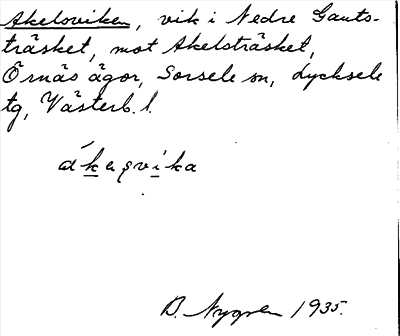 Akelsviken, vik i Nedre Gauts-
träsket, mot Akelsträsket,
Örnäs ägor, Sorsele sn, Lycksele
tg, Västerb. l.
ákesvika
B. Nygren 1935.